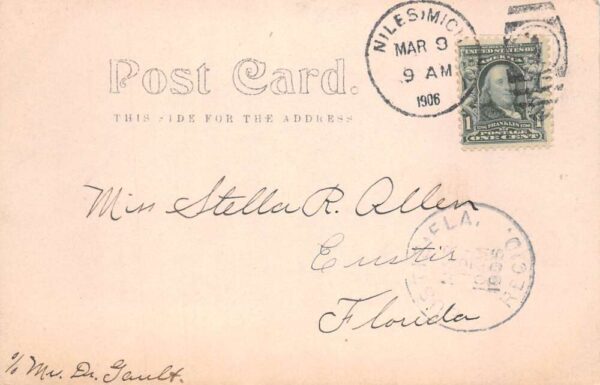 NILES, MICH.
MAR 9
9 AM
1906
UNITED STATES OF AMERICA
1706 FRANKLIN 1790
1 POSTAGE 1
ONE CENT
Post Card.
THIS SIDE FOR THE ADDRESS
Miss Stella R. Allen
Eustis
Florida
EUSTIS, FLA.
1906
REC'D
c/o Mr. Dr. Gault.